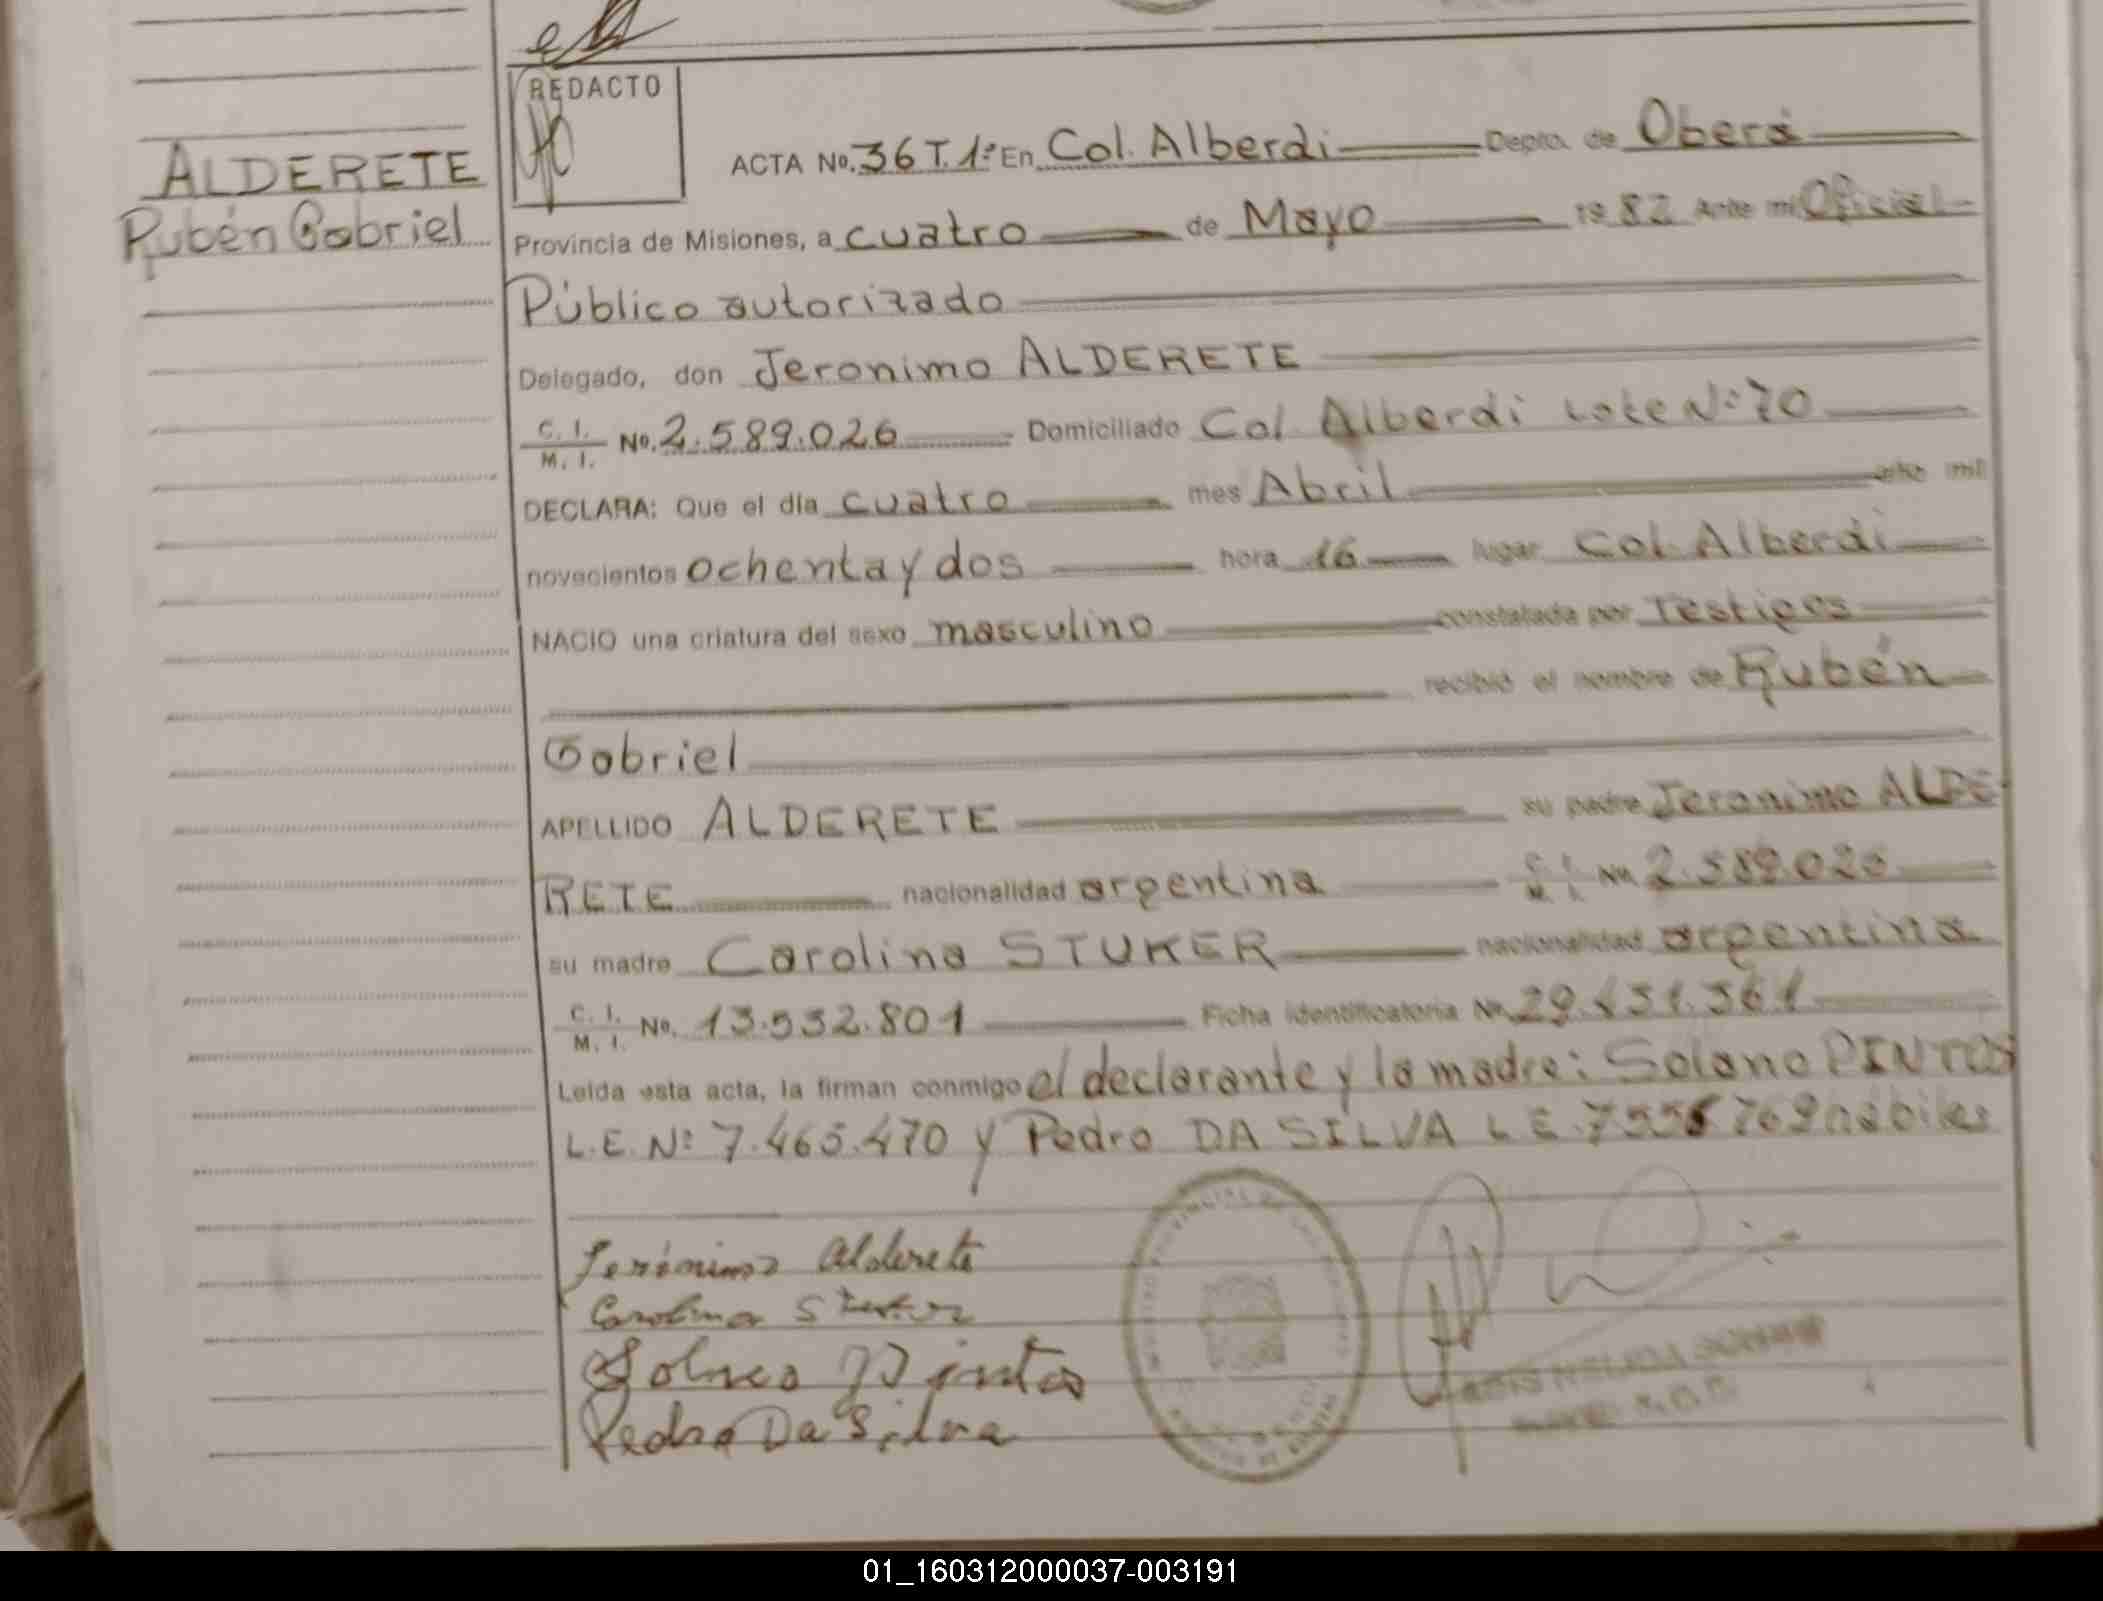 REDACTO
ALDERETE
Rubén Gabriel
ACTA No. 36 T. 1º En Col. Alberdi Depto. de Oberá
Provincia de Misiones, a cuatro de Mayo 1982 Ante mi Oficial
Público autorizado
Delegado, don Jeronimo ALDERETE
C. I. M. I. No. 2.589.026 Domiciliado Col. Alberdi Lote Nº 70
DECLARA: Que el día cuatro mes Abril año mil
novecientos ochenta y dos hora 16 lugar Col. Alberdi
NACIO una criatura del sexo masculino constatada por Testigos
recibió el nombre de Rubén
Gabriel
APELLIDO ALDERETE su padre Jeronimo ALDE-
RETE nacionalidad argentina C. I. M. I. No. 2.589.026
su madre Carolina STUKER nacionalidad argentina
C. I. M. I. No. 13.532.801 Ficha identificatoria No.
Leída esta acta, la firman conmigo el declarante y la madre: Solano PINTOS
L.E. Nº 7.465.470 y Pedro DA SILVA L.E. habiles
Jerónimo Alderete
Carolina
Pintos
Pedro Da Silva
01_160312000037-003191